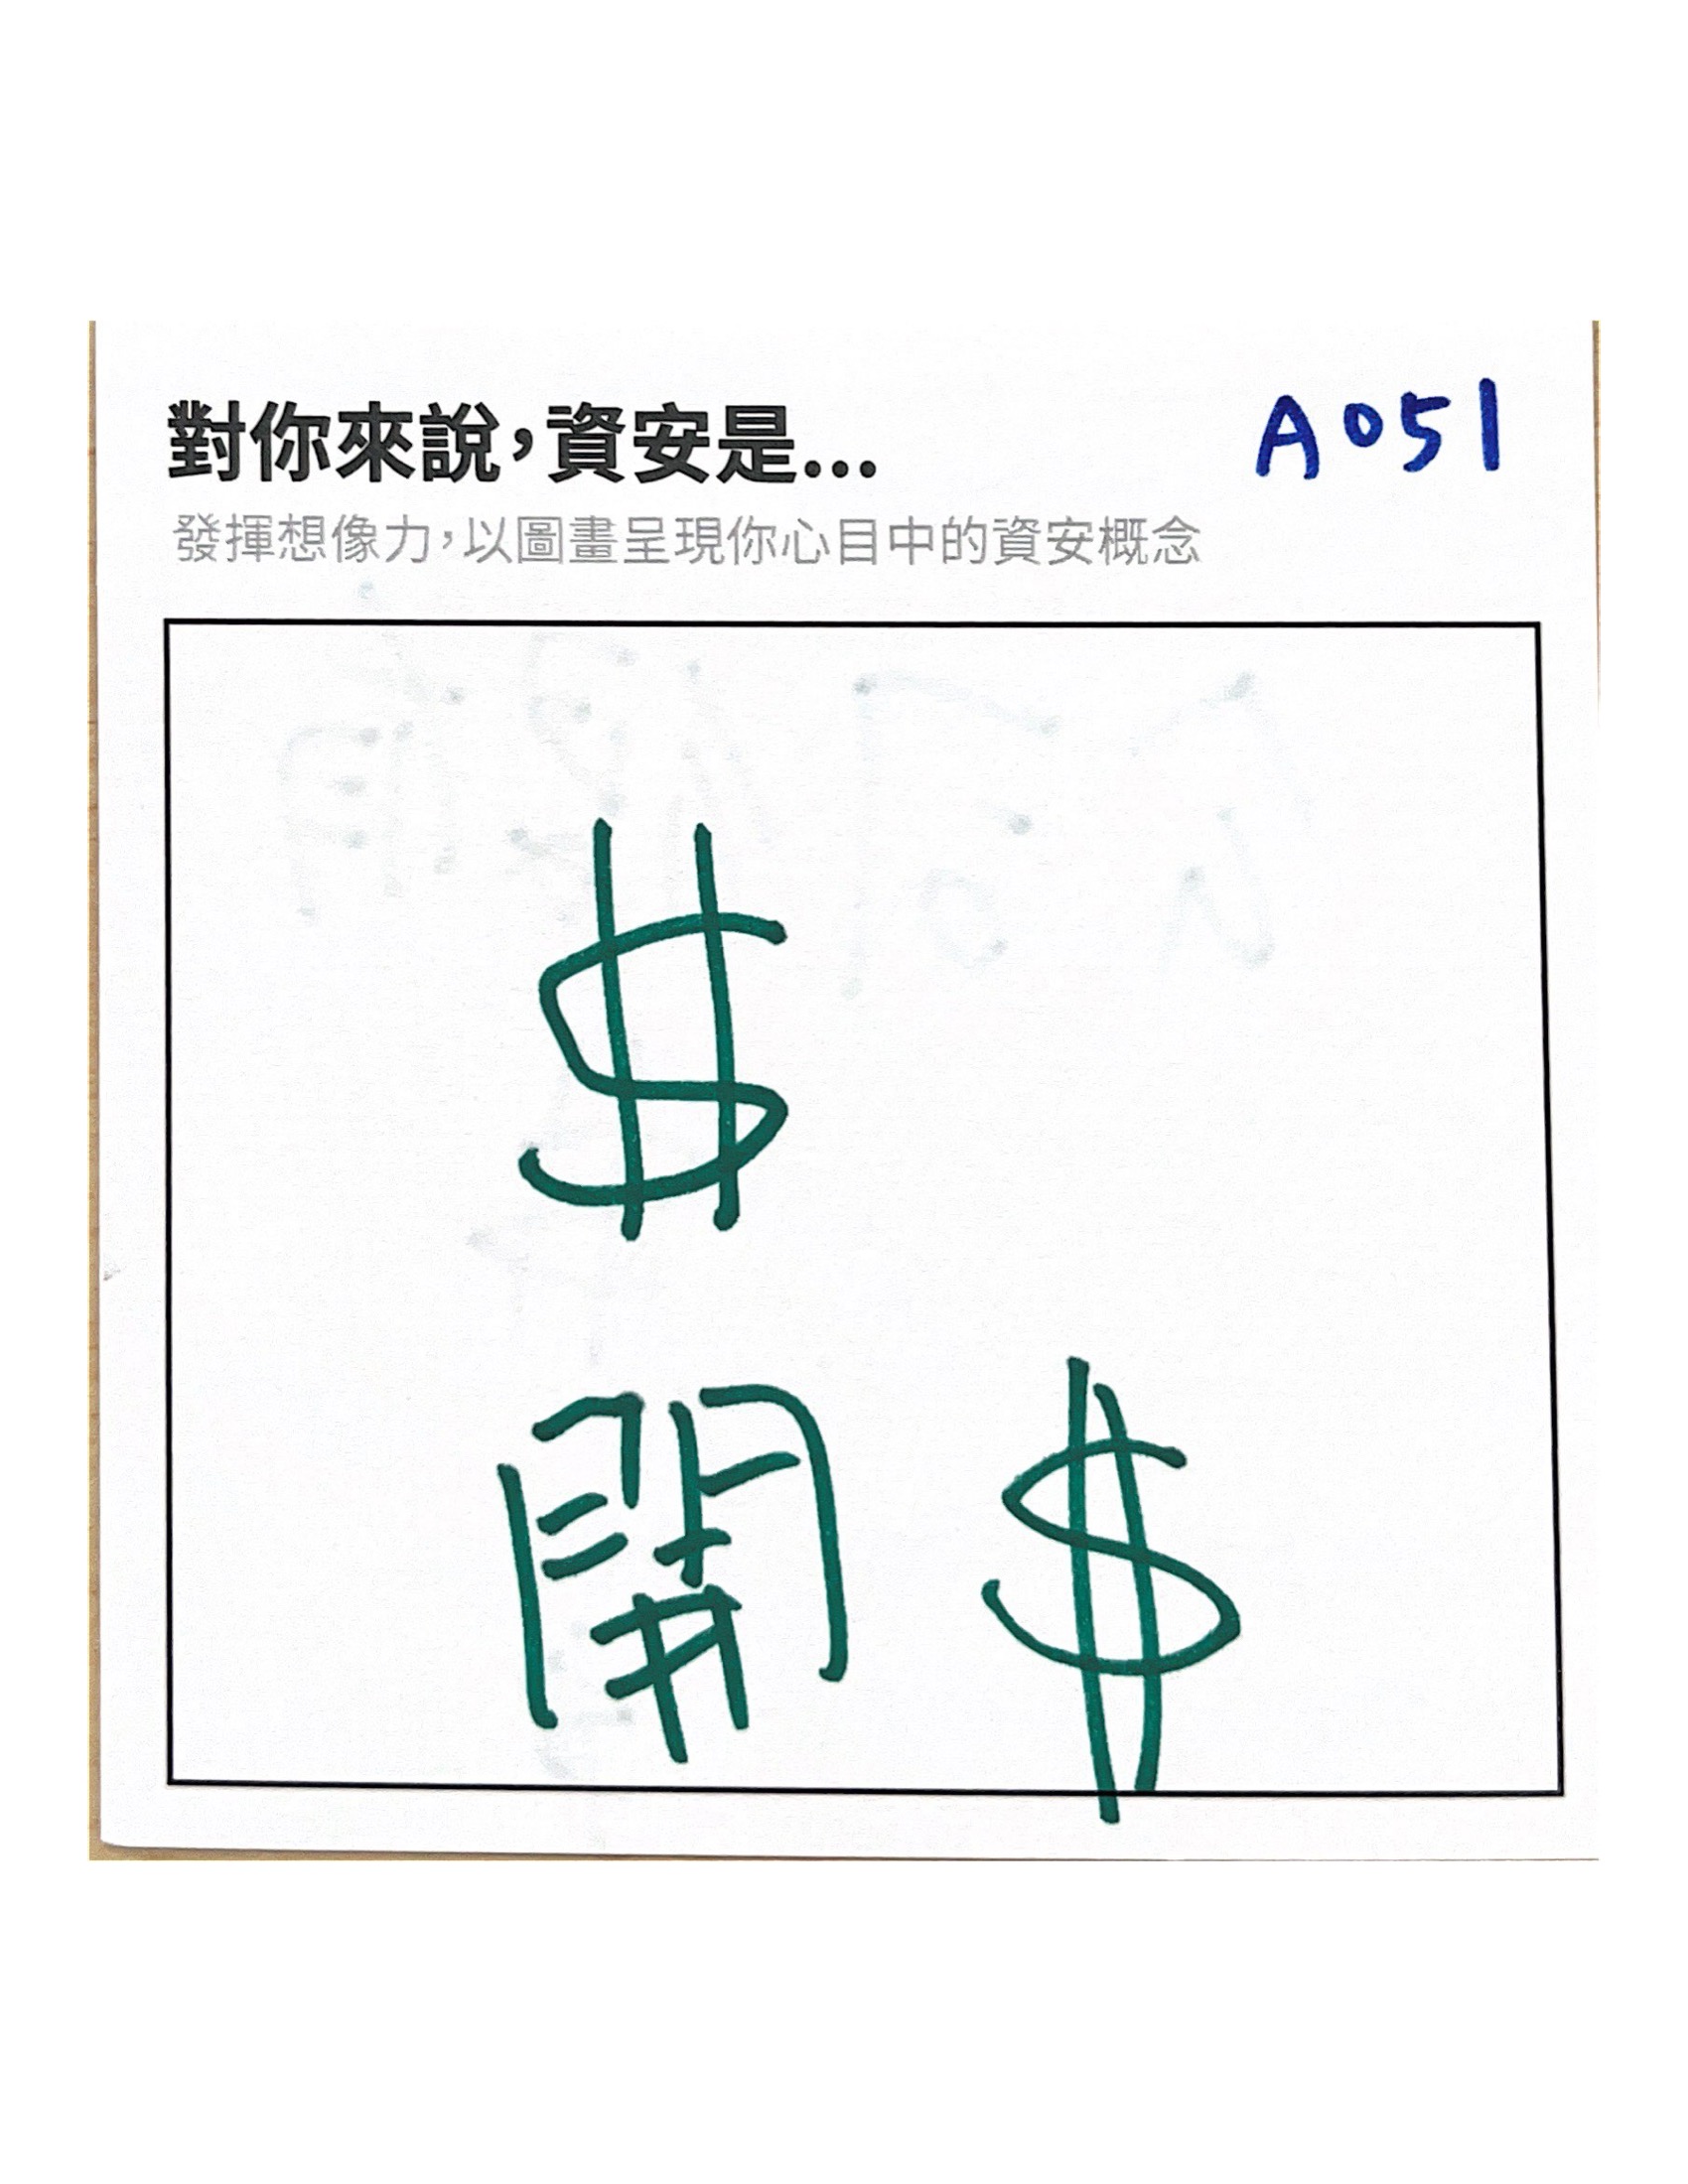 對你來說，資安是...
A051
發揮想像力，以圖畫呈現你心目中的資安概念
$
開 $